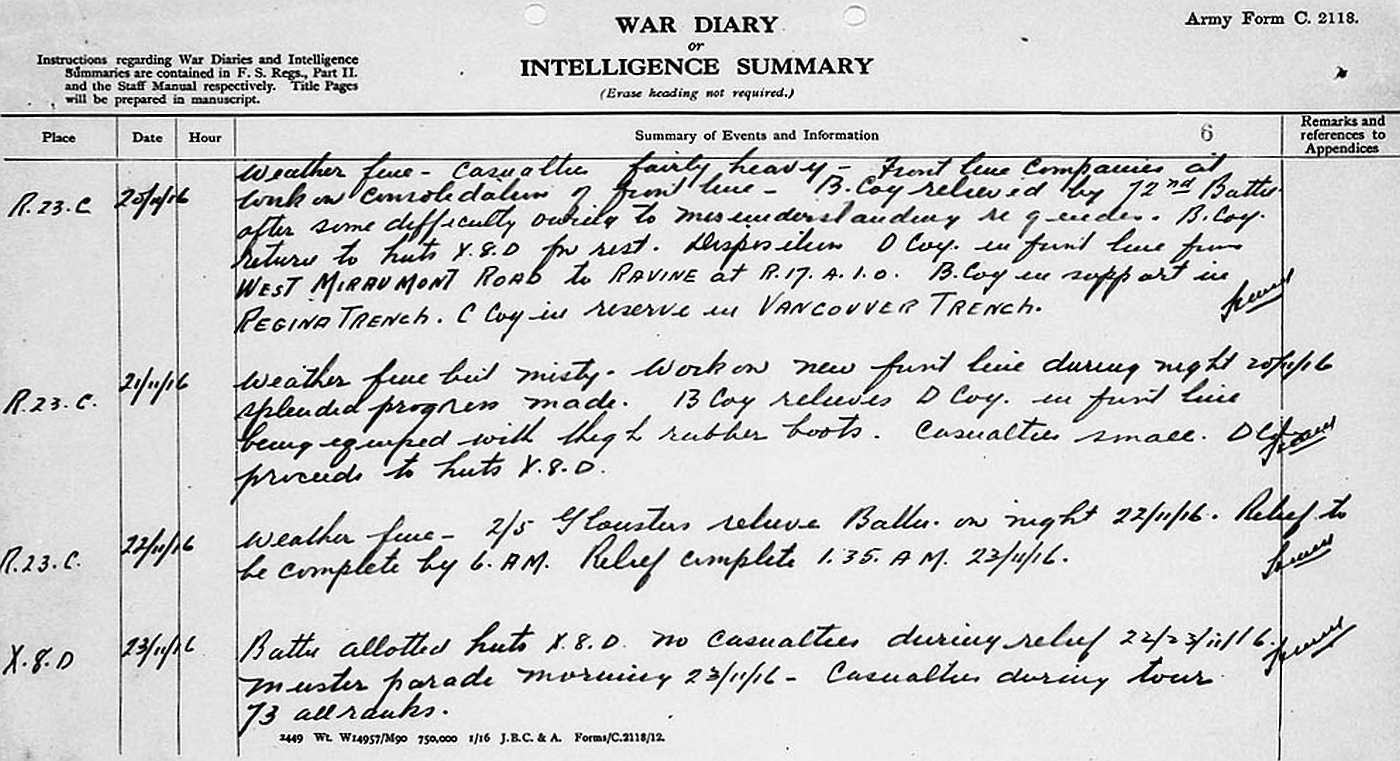 WAR DIARY
or
INTELLIGENCE SUMMARY
(Erase heading not required.)
Army Form C. 2118.
Instructions regarding War Diaries and Intelligence
Summaries are contained in F. S. Regs., Part II.
and the Staff Manual respectively. Title Pages
will be prepared in manuscript.
Place Date Hour Summary of Events and Information 6 Remarks and references to Appendices
R.23.C 20/11/16 Weather fine - Casualties fairly heavy - Front line Companies at
work on consolidation of front line - B. Coy relieved by 72nd Battn
after some difficulty owing to misunderstanding re guides. B. Coy.
return to huts X.8.D for rest. Disposition D Coy. in front line from
WEST MIRAUMONT ROAD to RAVINE at R.17.A.1.0. B. Coy in support in
REGINA TRENCH. C Coy in reserve in VANCOUVER TRENCH.
R.23.C. 21/11/16 Weather fine but misty. Work on new front line during night 20/11/16
splendid progress made. B Coy relieves D Coy. in front line
being equiped with thigh rubber boots. Casualties small. D Coy
proceeds to huts X.8.D.
R.23.C. 22/11/16 Weather fine - 2/5 Glousters relieve Battn. on night 22/11/16. Relief to
be complete by 6. AM. Relief complete 1.35. A M. 23/11/16.
X.8.D 23/11/16 Battn allotted huts X.8.D. No casualties during relief 22/23/11/16.
Muster parade morning 23/11/16 - Casualties during tour
73 all ranks.
2449 Wt. W14957/M90 750,000 1/16 J.B.C. & A. Forms/C.2118/12.